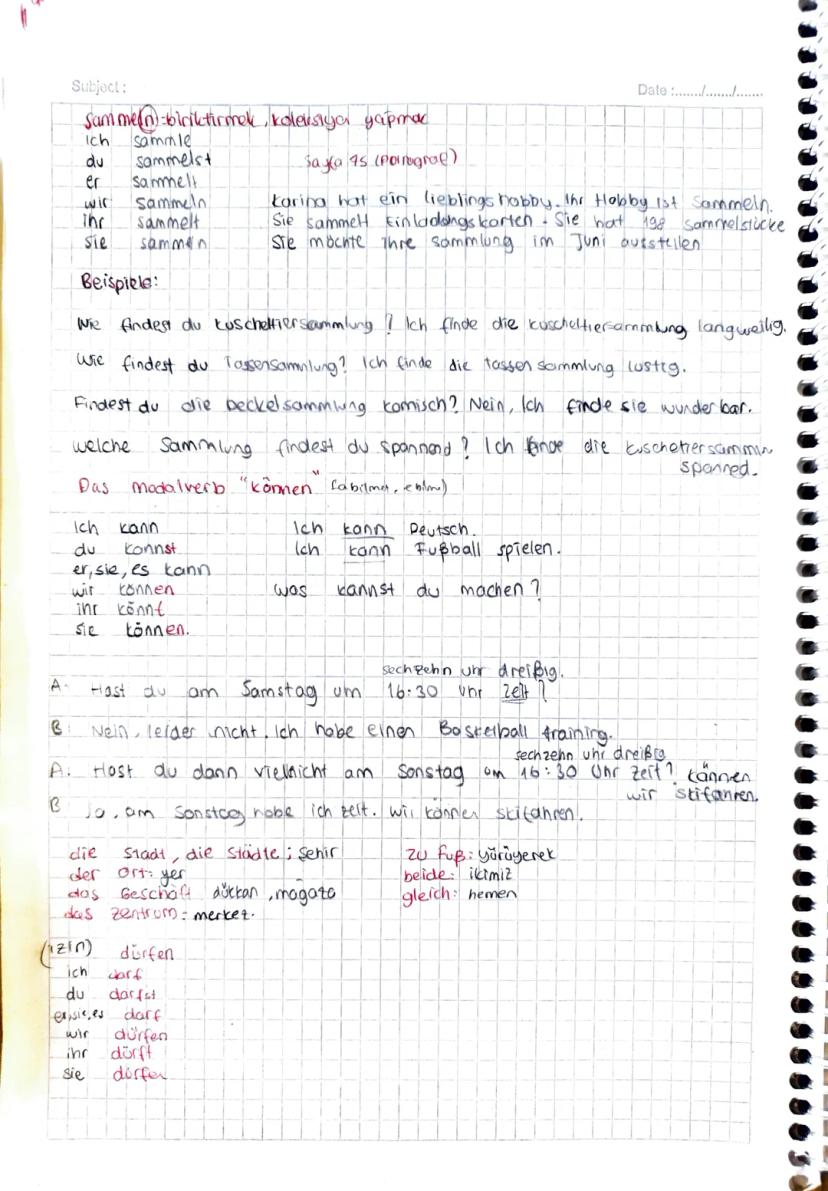 Subject:
Date:......./......./.......
sammeln: biriktirmek, koleksiyon yapmak
ich sammle
du sammelst sayfa 45 (paragraf)
er sammelt
wir sammeln Karina hat ein lieblingshobby. Ihr Hobby ist Sammeln.
ihr sammelt Sie sammelt Einladungskarten. Sie hat 198 Sammelstücke
sie sammeln Sie möchte ihre sammlung im Juni ausstellen
Beispiele:
Wie findest du kuscheltiersammlung? Ich finde die kuscheltiersammlung langweilig.
Wie findest du Tassensammlung? Ich finde die tassen sammlung lustig.
Findest du die Deckelsammlung komisch? Nein, Ich finde sie wunderbar.
welche Sammlung findest du spannend? Ich finde die
spanned.
Das modalverb "können" (abilmek, ebilmek)
Ich kann Ich kann Deutsch.
du kannst Ich kann Fußball spielen.
er, sie, es kann
wir können was kannst du machen?
ihr könnt
sie können.
sechzehn uhr dreißig.
A. Hast du am Samstag um 16:30 Uhr Zeit?
B: Nein, leider nicht. Ich habe einen Basketball training.
sechzehn uhr dreißig
A: Hast du dann vielleicht am Sonstag um 16:30 Uhr Zeit? können
wir skifahren.
B Ja, am Sonstag habe ich zeit. Wir können skifahren.
die Stadt, die Städte; şehir zu Fuß: yürüyerek
der Ort: yer beide: ikimiz
das Geschäft dükkan, mağaza gleich: hemen
das Zentrum: merkez.
(izin) dürfen
ich darf
du darfst
er, sie, es darf
wir dürfen
ihr dürft
sie dürfen